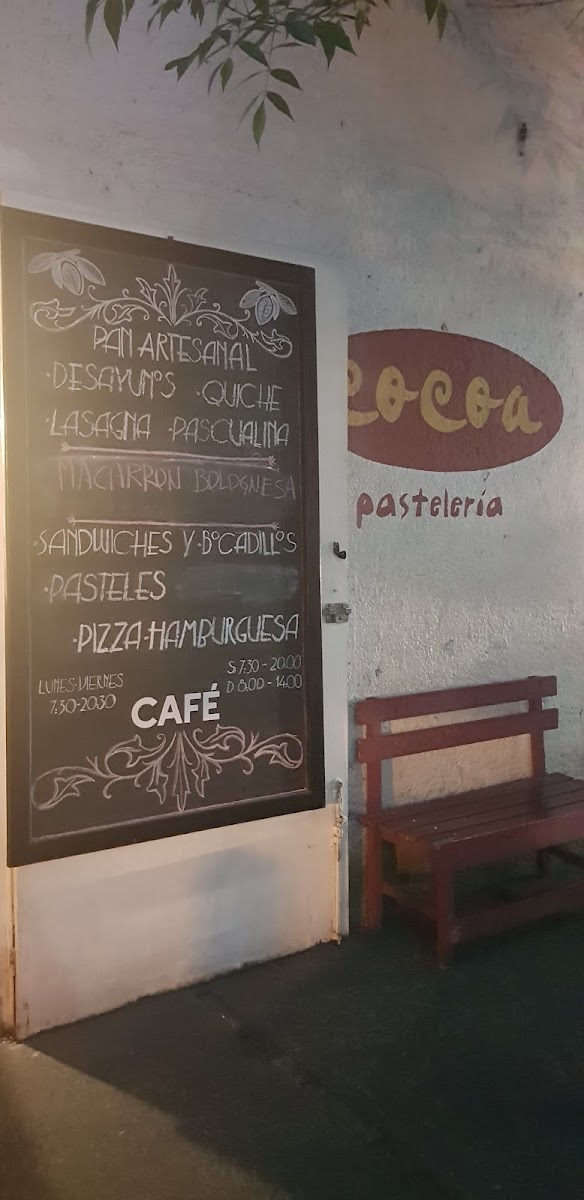 PAN ARTESANAL
·DESAYUNOS ·QUICHE
·LASAGNA ·PASCUALINA
MACARRON BOLOGNESA
·SANDWICHES Y ·BOCADILLOS
·PASTELES
·PIZZA·HAMBURGUESA
LUNES-VIERNES
7:30-20:30
S 7:30 - 20:00
D 8:00 - 14:00
CAFÉ
cocoa
pastelería